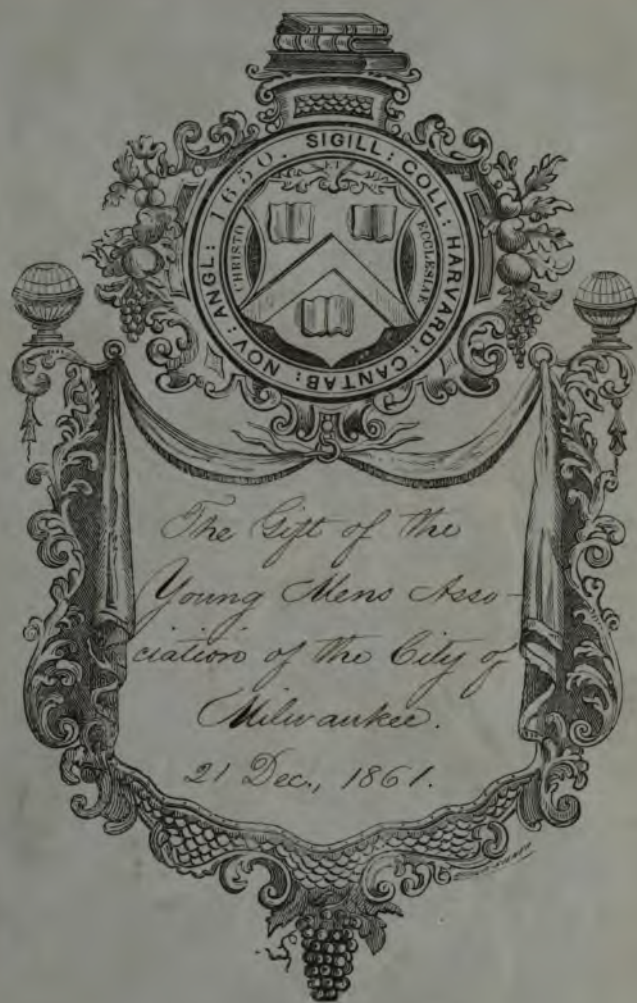 SIGILL: COLL: HARVARD: CANTAB: NOV: ANGL: 1650.
ET
CHRISTO
ECCLESIAE
The Gift of the
Young Mens Asso-
ciation of the City of
Milwaukee.
21 Dec., 1861.